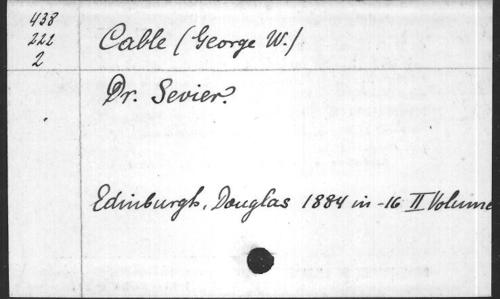 438
222
2
Cable (George W.)
Dr. Sevier.
Edinburgh, Douglas 1884 in-16 II Volume